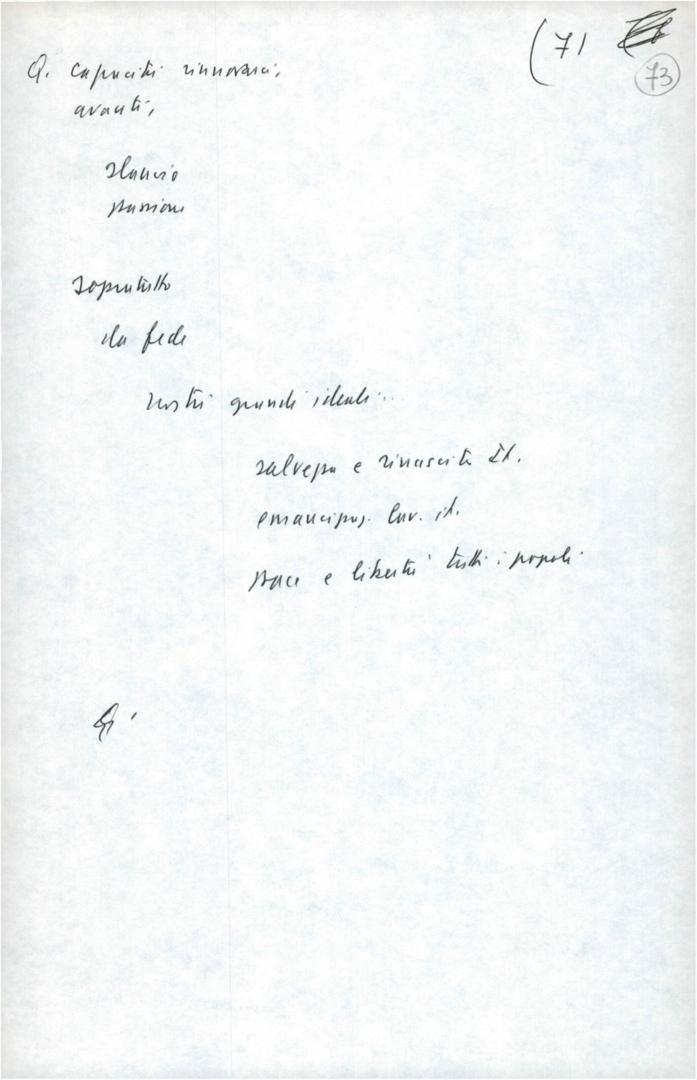 (71
73
Q. capacità rinnovarci,
avanti,
slancio
passione
sopratutto
la fede
nostri grandi ideali...
salvezza e rinascita It.
emancipaz. lav. it.
pace e libertà tutti i popoli